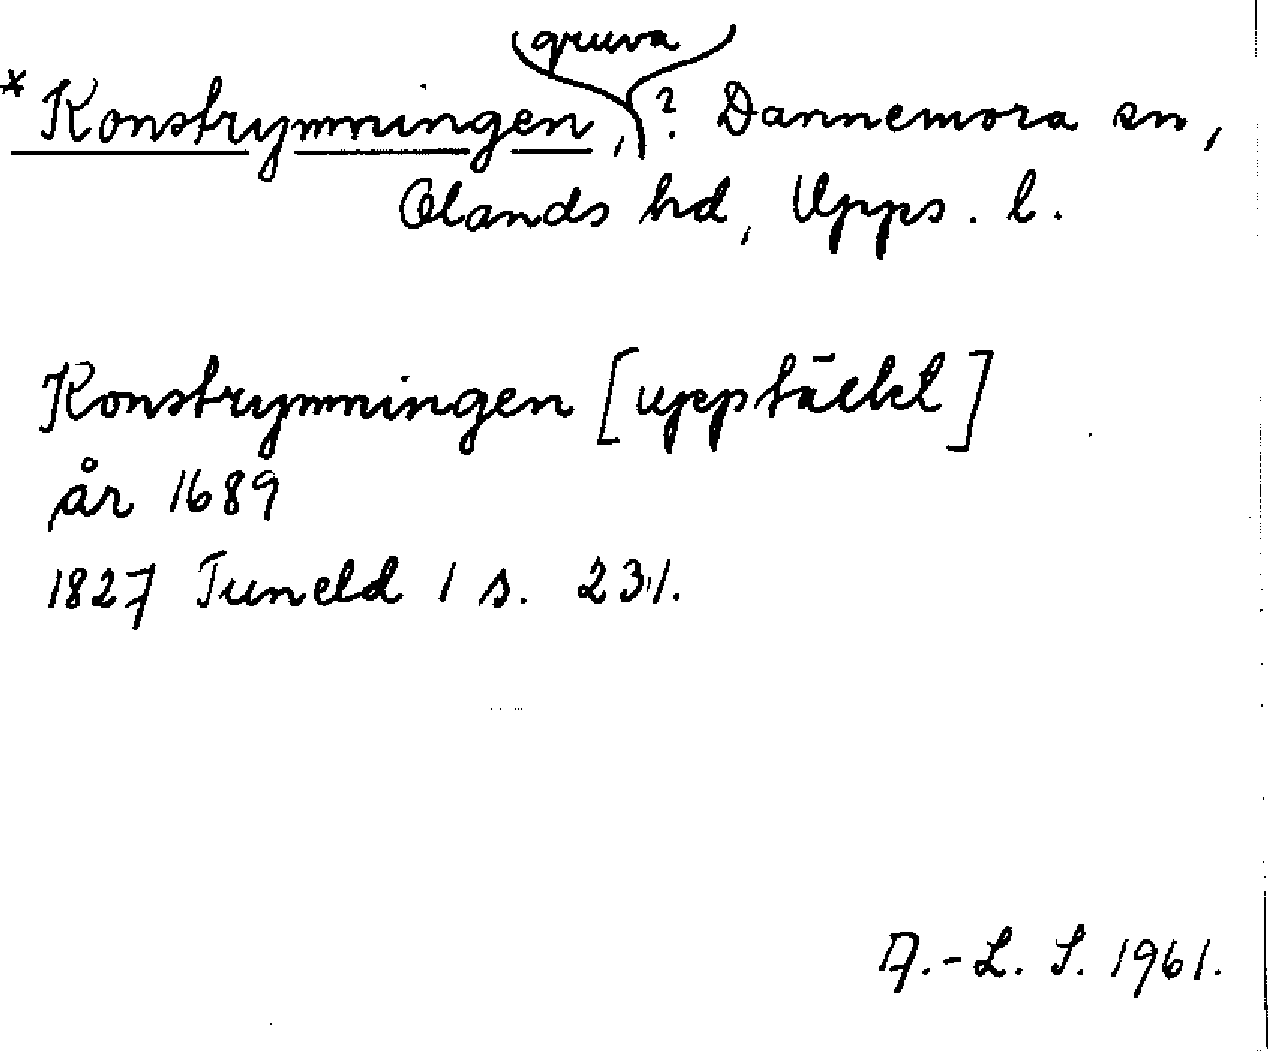 gruva
*Konstrymningen, ? Dannemora sn,
Olands hd, Upps. l.
Konstrymningen [upptäckt]
år 1689
1827 Tuneld 1 s. 231.
A.-L. S. 1961.